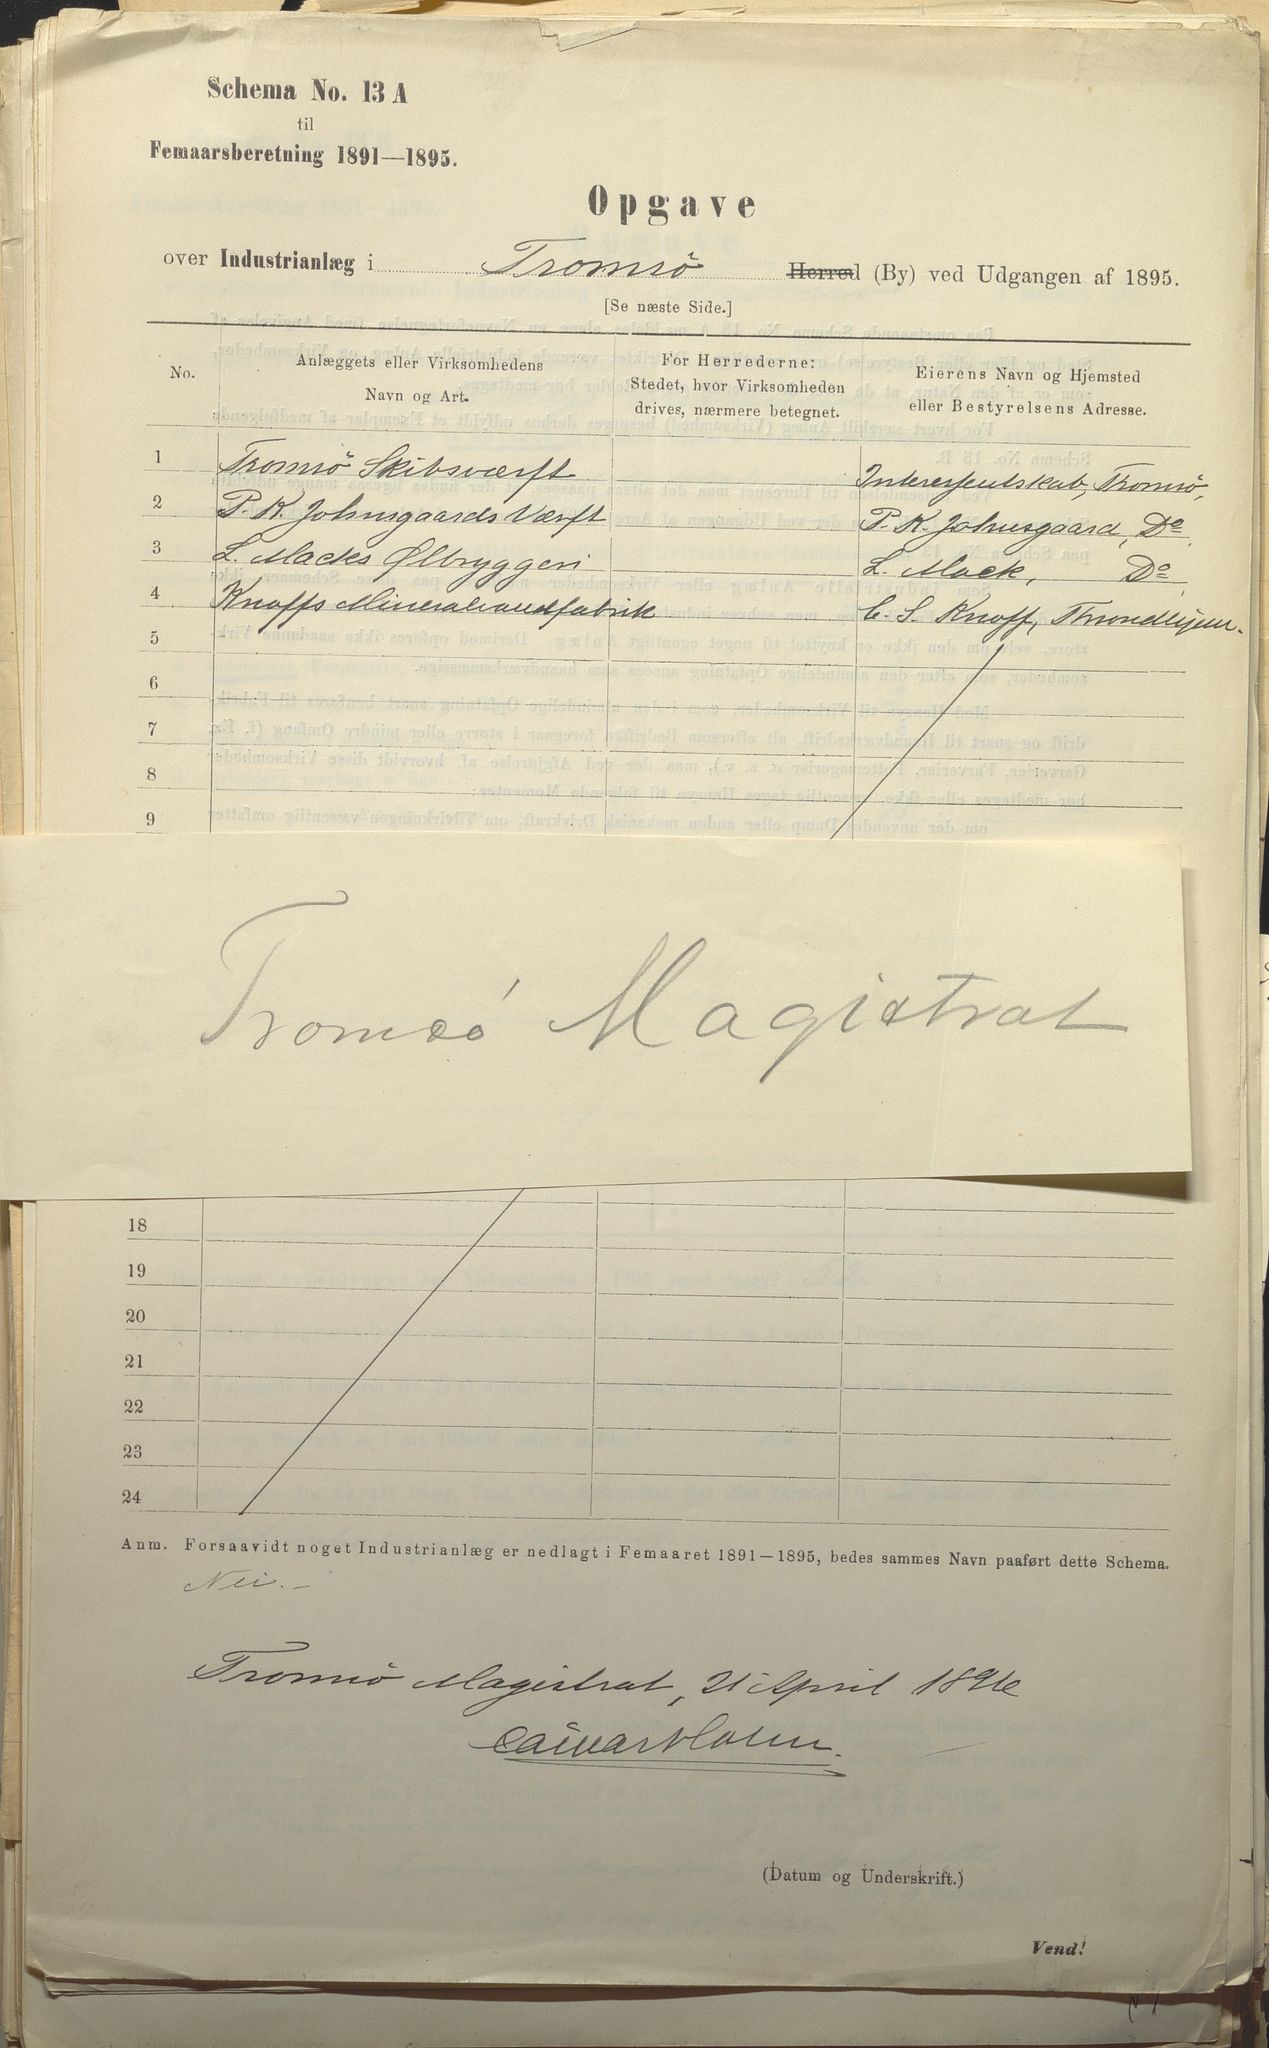 Schema No. 13 A
til
Femaarsberetning 1891—1895.
Opgave
over Industrianlæg i Tromsö Herred (By) ved Udgangen af 1895.
[Se næste Side.]
No.
Anlæggets eller Virksomhedens
Navn og Art.
For Herrederne:
Stedet, hvor Virksomheden
drives, nærmere betegnet.
Eierens Navn og Hjemsted
eller Bestyrelsens Adresse.
1 Tromsö Skibsværft Interessentskab, Tromsö,
2 P. K. Johnsgaards Værft P. K. Johnsgaard, Do,
3 L. Macks Ølbryggeri L. Mack, Do
4 Knoffs Mineralvandfabrik C. S. Knoff, Throndhjem.
5
6
7
8
9
Tromsö Magistrat
18
19
20
21
22
23
24
Anm. Forsaavidt noget Industrianlæg er nedlagt i Femaaret 1891—1895, bedes sammes Navn paaført dette Schema.
Nei.—
Tromsö Magistrat, 21 April 1896
(Datum og Underskrift.)
Vend!